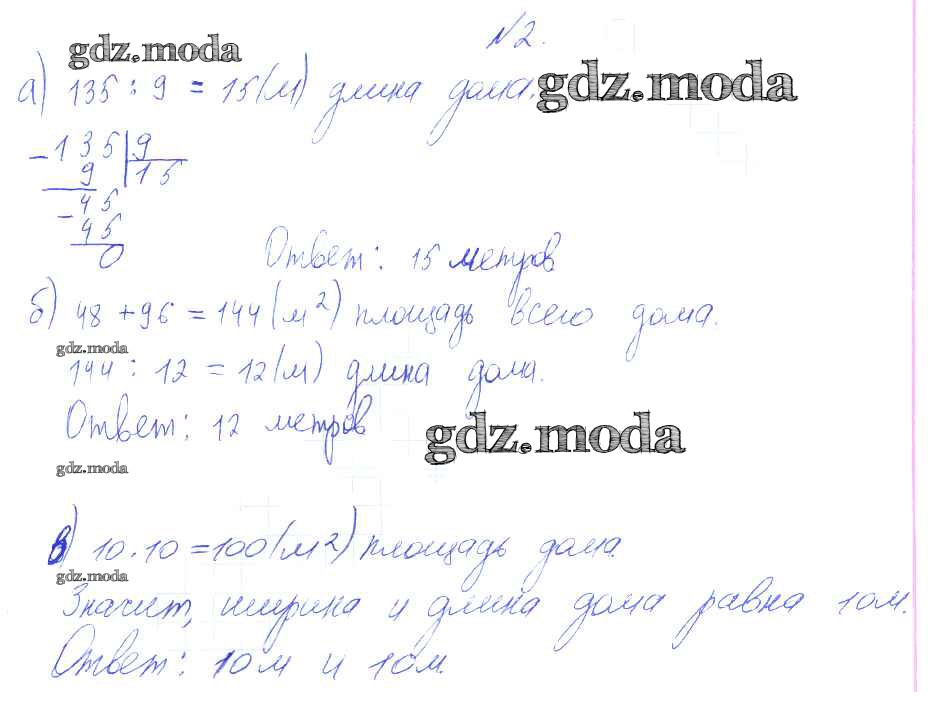 gdz.moda
№2.
а) 135 : 9 = 15(м) длина дома.
gdz.moda
- 135 | 9
9 | 15
- 45
45
0
Ответ: 15 метров
б) 48 + 96 = 144(м²) площадь всего дома.
gdz.moda
144 : 12 = 12(м) длина дома.
Ответ: 12 метров
gdz.moda
gdz.moda
в) 10 · 10 = 100(м²) площадь дома.
gdz.moda
Значит, ширина и длина дома равна 10м.
Ответ: 10м и 10м.